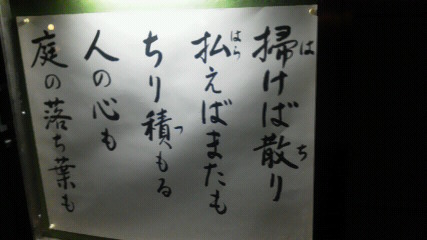 掃けば散り
払えばまたも
ちり積もる
人の心も
庭の落ち葉も